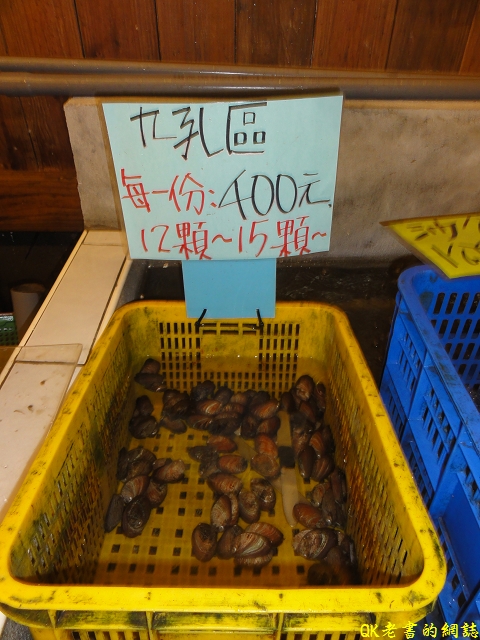 九孔區
每一份:400元
12顆~15顆~
QK老書的網誌